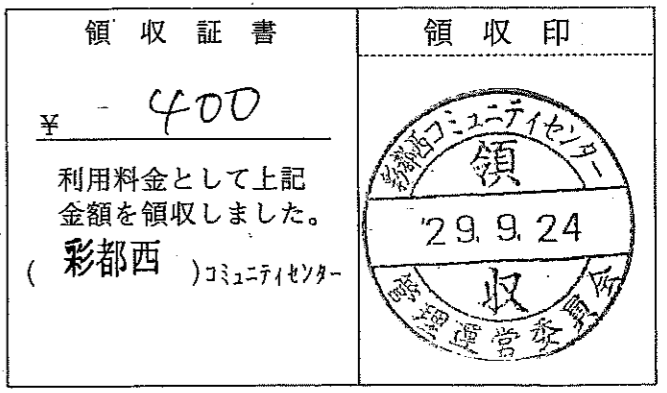 領収証書
¥ - 400
利用料金として上記
金額を領収しました。
(彩都西)コミュニティセンター
領収印
彩都西コミュニティセンター
領
'29.9.24
収
管理運営委員会